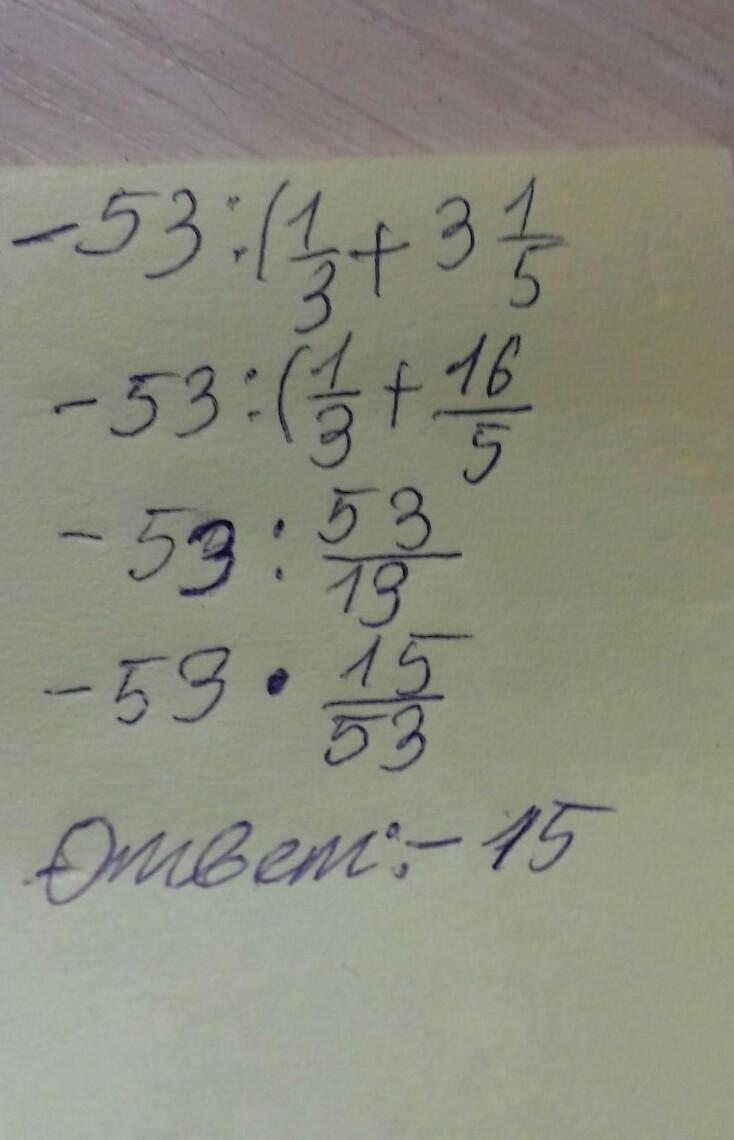 -53:(1/3+3 1/5
-53:(1/3+16/5
-53:53/13
-53•15/53
Ответ:-15